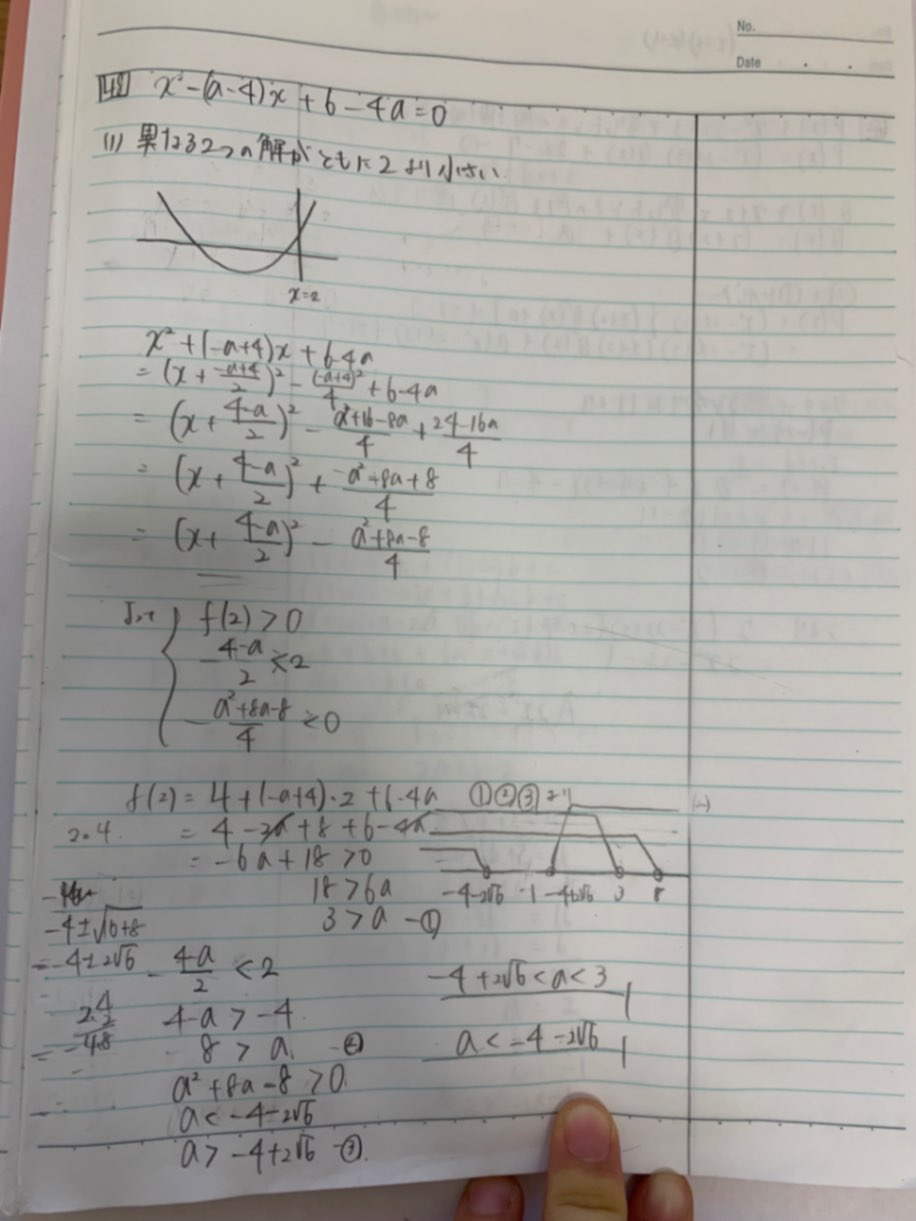 No.
Date
148 x²-(a-4)x+6-4a=0
(1) 異なる2つの解がともに2より小さい
x=2
x²+(-a+4)x+6-4a
=(x+\frac{-a+4}{2})²-\frac{(-a+4)²}{4}+6-4a
=(x+\frac{4-a}{2})²-\frac{a²+16-8a}{4}+\frac{24-16a}{4}
=(x+\frac{4-a}{2})²+\frac{-a²+8a+8}{4}
=(x+\frac{4-a}{2})²-\frac{a²+8a-8}{4}
よって
f(2)>0
-\frac{4-a}{2}<2
-\frac{a²+8a-8}{4}<0
f(2)=4+(-a+4)・2+6-4a
=4-2a+8+6-4a
=-6a+18>0
18>6a
3>a -①
2・4
-4±√16+8
=-4±2√6
-\frac{4-a}{2}<2
4-a>-4
8>a -②
a²+8a-8>0
a<-4-2√6
a>-4+2√6 -③
①②③より
-4-2√6 -1 -4+2√6 3 8
-4+2√6<a<3
a<-4-2√6